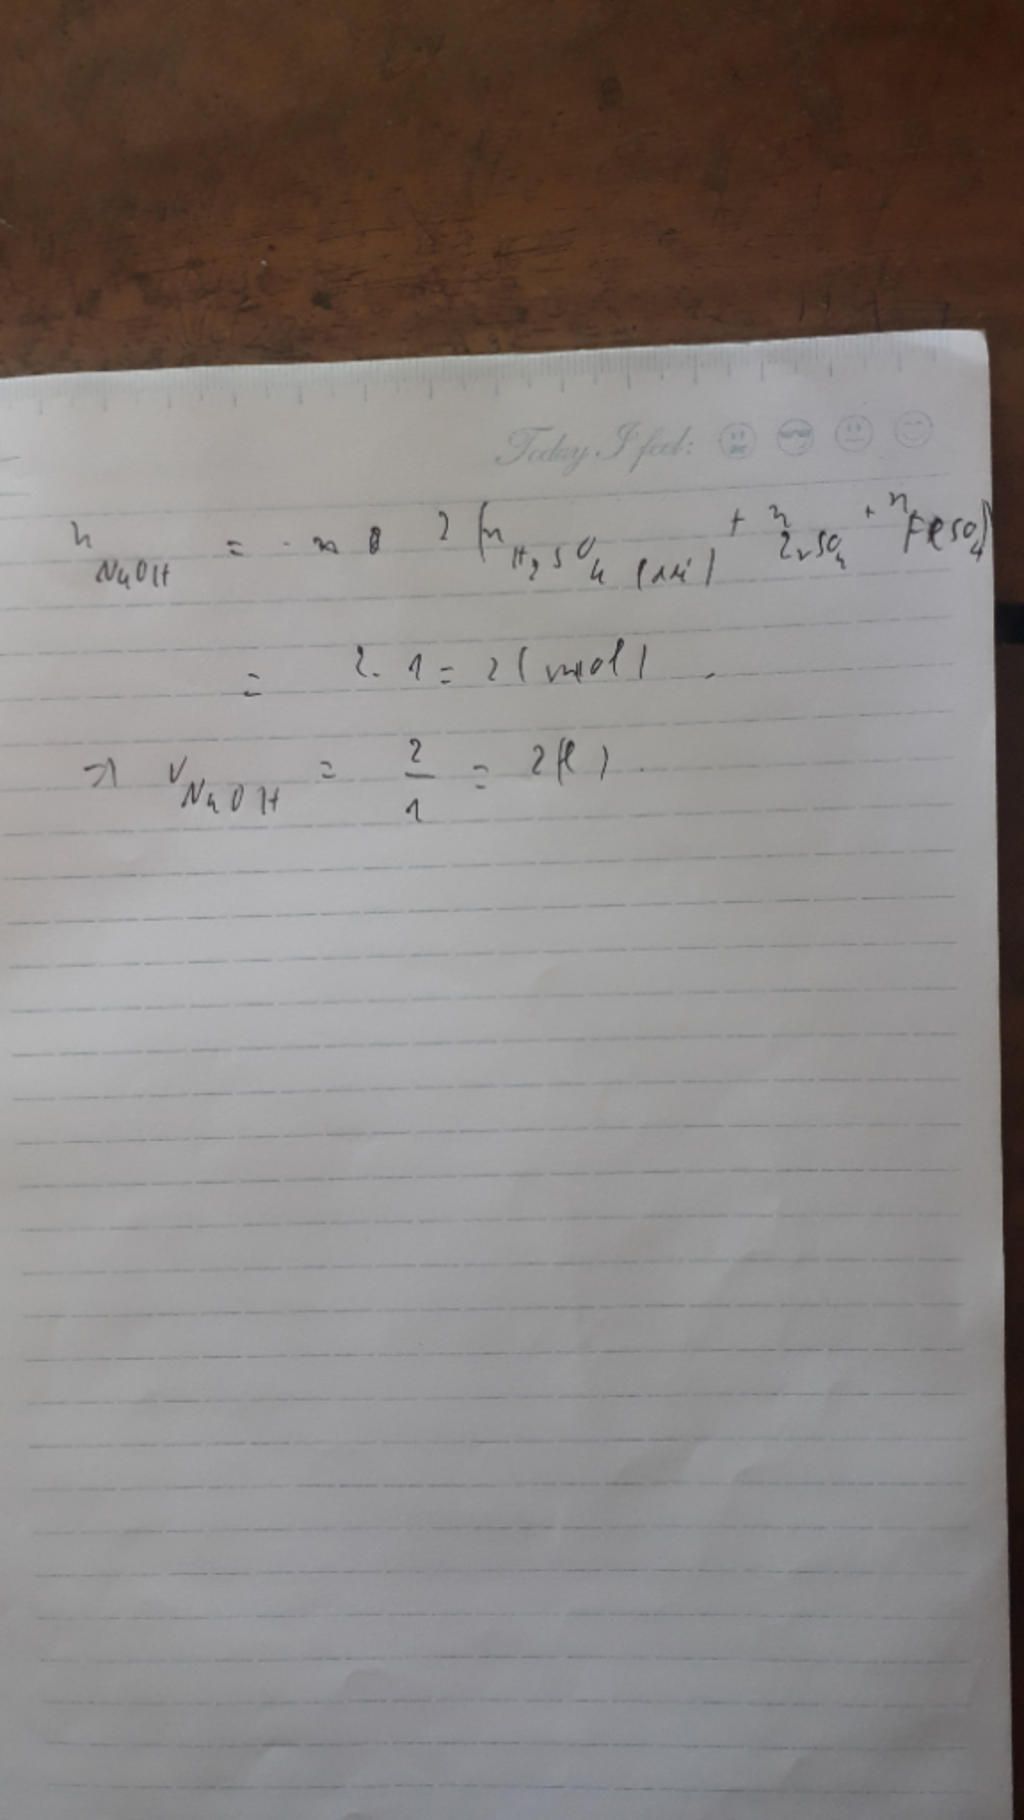 Today I feel:
n NaOH = 2 (n H2SO4 + n ZnSO4 + n FeSO4)
= 2. 1 = 2 (mol)
=> V NaOH = 2/1 = 2 (l).